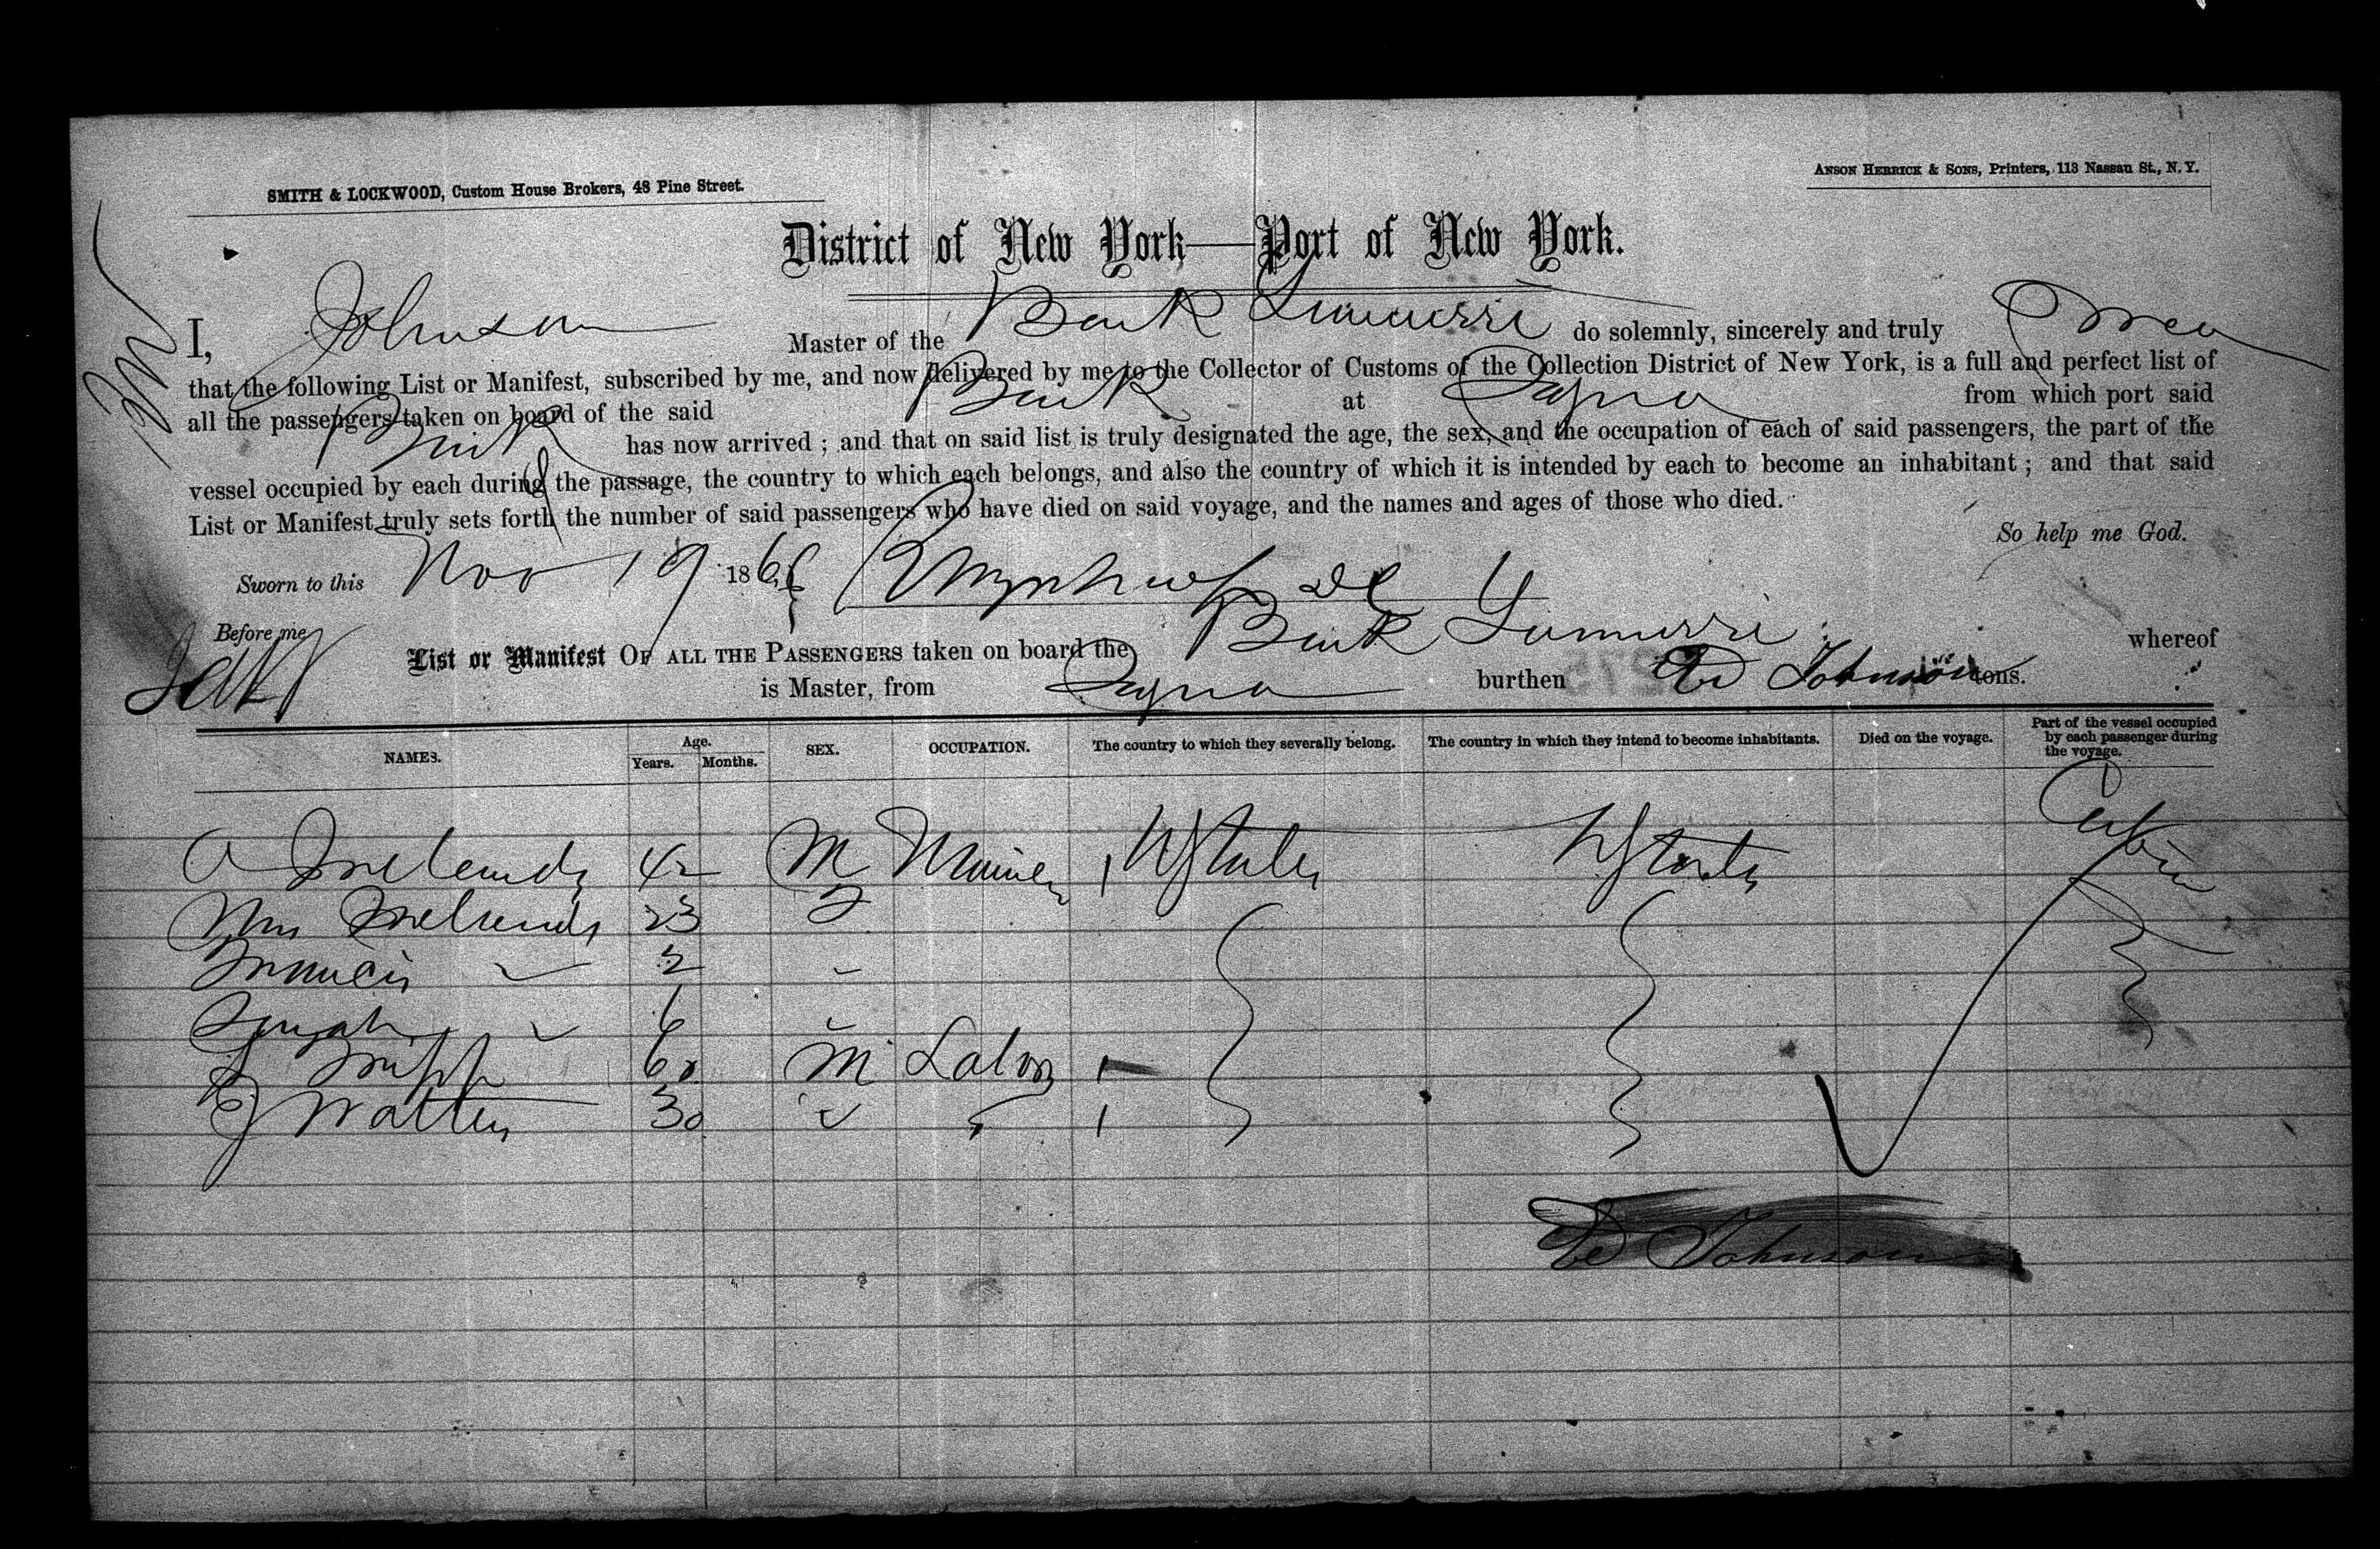 SMITH & LOCKWOOD, Custom House Brokers, 48 Pine Street.
ANSON HERRICK & SONS, Printers, 113 Nassau St., N. Y.
District of New York—Port of New York.
I, Johnson Master of the Bark do solemnly, sincerely and truly
that the following List or Manifest, subscribed by me, and now delivered by me to the Collector of Customs of the Collection District of New York, is a full and perfect list of
all the passengers taken on board of the said Bark at Sagua from which port said
Bark has now arrived ; and that on said list is truly designated the age, the sex, and the occupation of each of said passengers, the part of the
vessel occupied by each during the passage, the country to which each belongs, and also the country of which it is intended by each to become an inhabitant ; and that said
List or Manifest truly sets forth the number of said passengers who have died on said voyage, and the names and ages of those who died.
So help me God.
Sworn to this Nov 19 186
Before me
List or Manifest OF ALL THE PASSENGERS taken on board the Bark whereof
is Master, from Sagua burthen Ed Johnson tons.
NAMES. Age. Years. Months. SEX. OCCUPATION. The country to which they severally belong. The country in which they intend to become inhabitants. Died on the voyage. Part of the vessel occupied by each passenger during the voyage.
A 42 M UStates UStates Cabin
Mrs 23 F
Francis 2
6
60 M Labor
J Walters 30
Ed Johnson